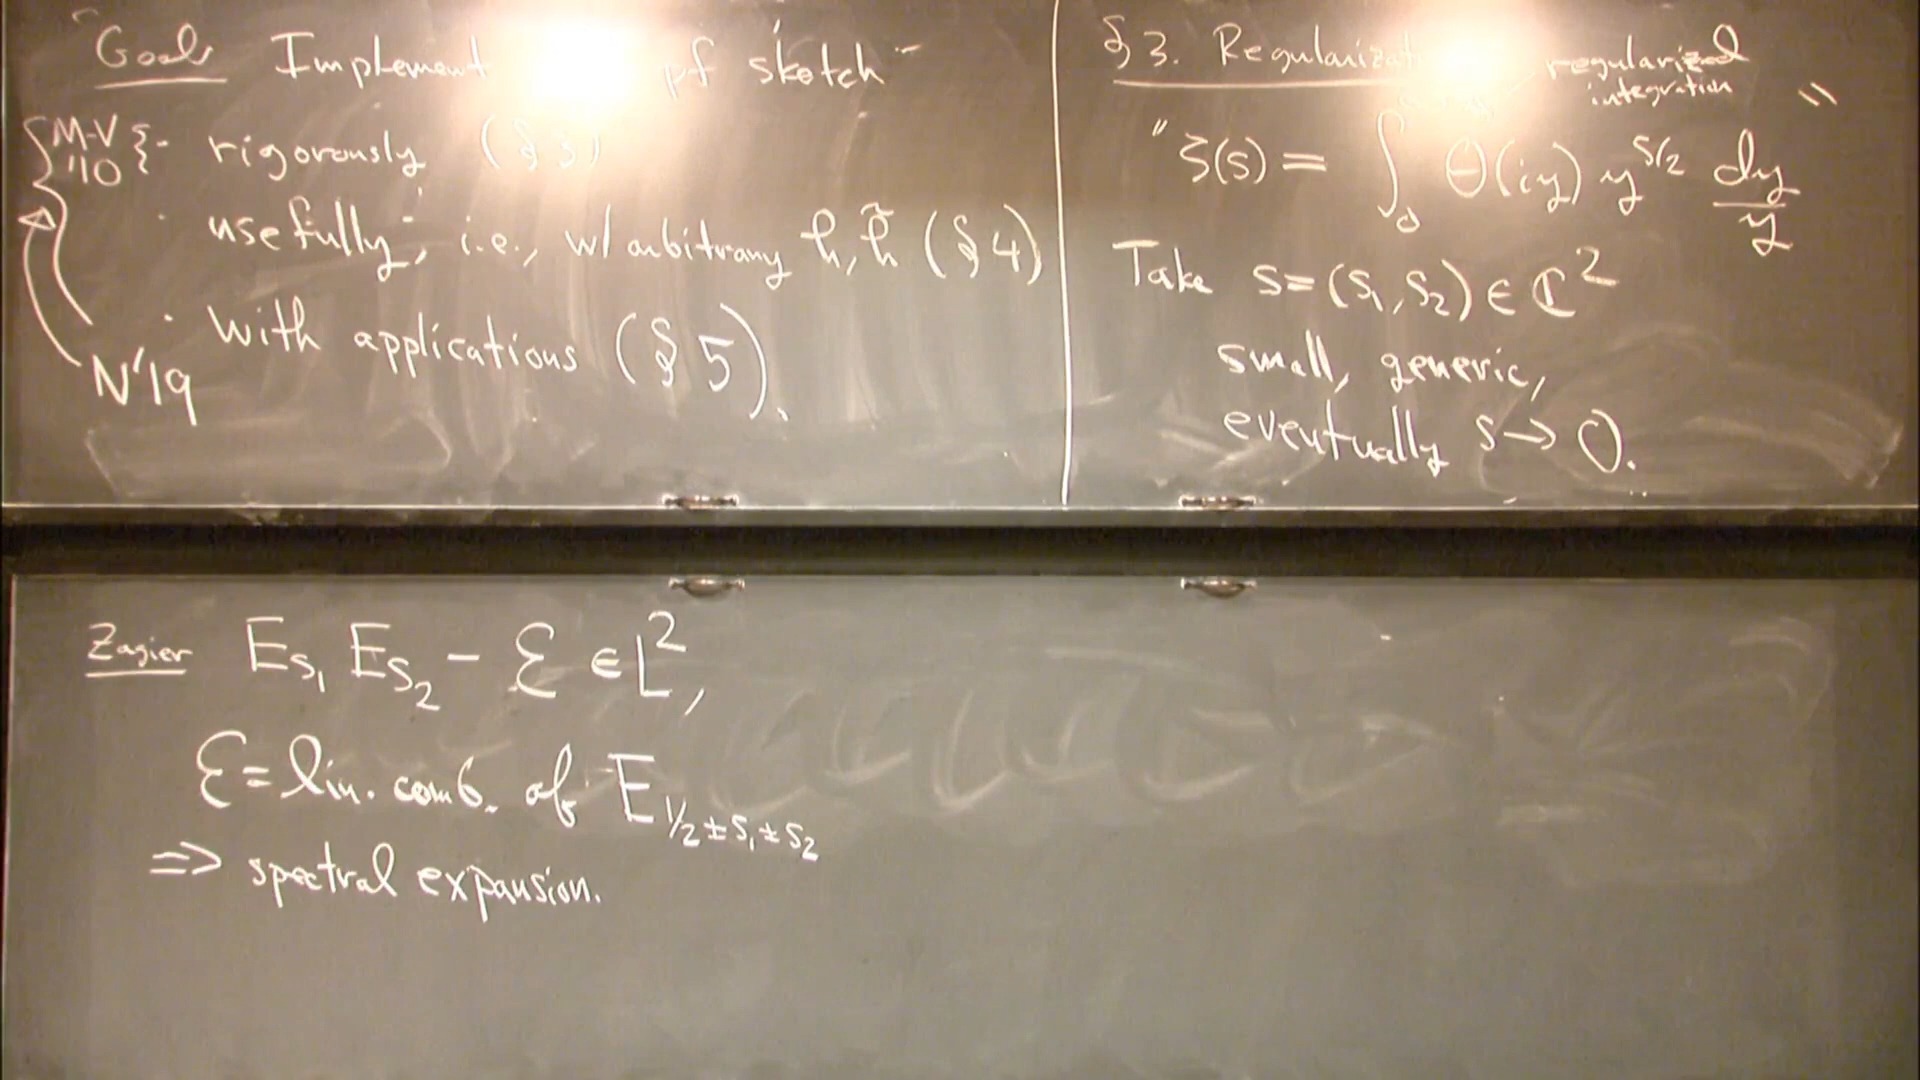 "Goal: Implement pf sketch"
M-V '10 · rigorously (§3)
· usefully, i.e., w/ arbitrary h, h̃ (§4)
· with applications (§5).
N'19
§3. Regularizat
regularized
integration
"ζ(s) = ∫₀ Θ(iy) y^{s/2} dy/y"
Take s=(s₁,s₂)∈ℂ²
small, generic,
eventually s→0.
Zagier E_{s₁} E_{s₂} − ℰ ∈ L²,
ℰ = lin. comb. of E_{1/2±s₁±s₂}
⇒ spectral expansion.